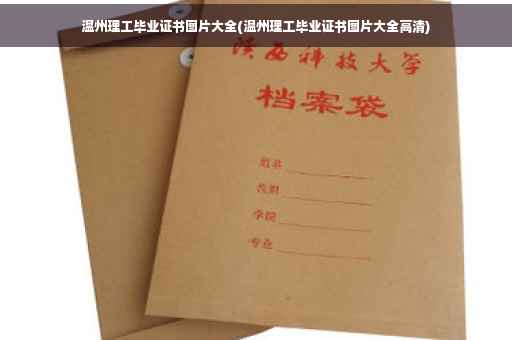 温州理工毕业证书图片大全(温州理工毕业证书图片大全高清)
陕西科技大学
档案袋
姓名
学院
专业